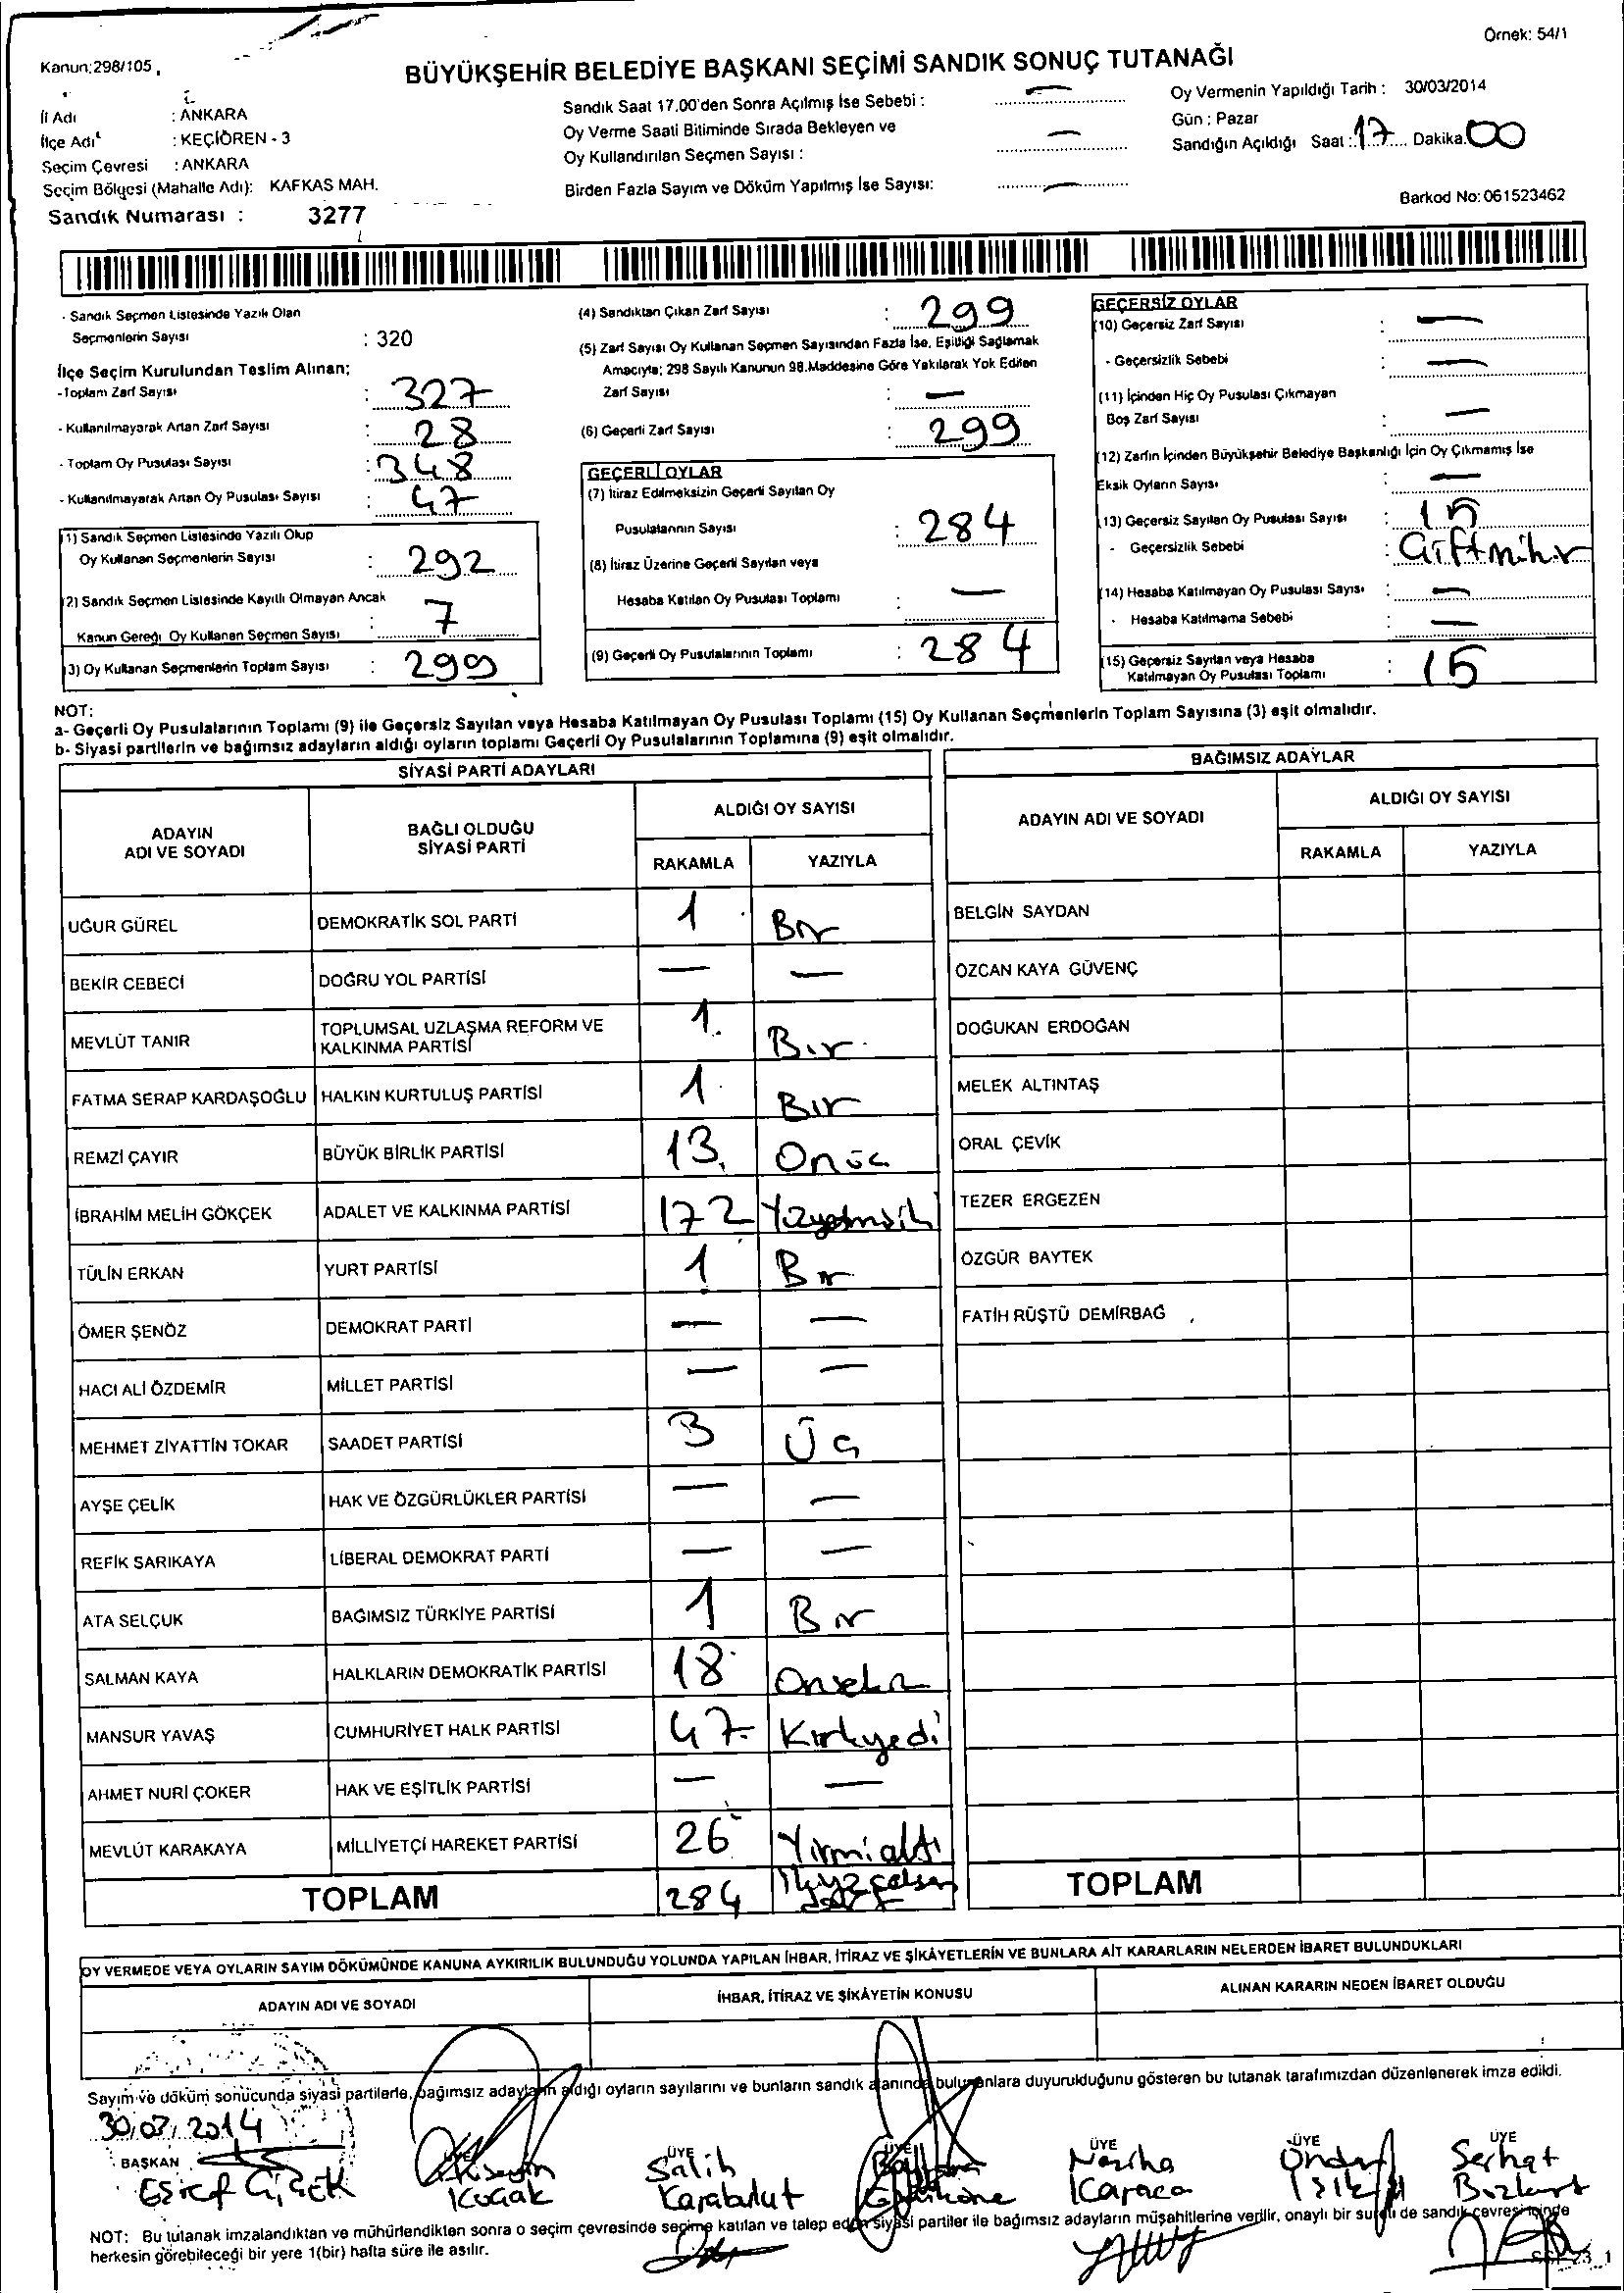 Örnek: 54/1
Kanun:298/105
BÜYÜKŞEHİR BELEDİYE BAŞKANI SEÇİMİ SANDIK SONUÇ TUTANAĞI
İl Adı : ANKARA
İlçe Adı : KEÇİÖREN - 3
Seçim Çevresi : ANKARA
Seçim Bölgesi (Mahalle Adı): KAFKAS MAH.
Sandık Numarası : 3277
Sandık Saat 17.00'den Sonra Açılmış İse Sebebi : —
Oy Verme Saati Bitiminde Sırada Bekleyen ve
Oy Kullandırılan Seçmen Sayısı : —
Birden Fazla Sayım ve Döküm Yapılmış İse Sayısı: —
Oy Vermenin Yapıldığı Tarih : 30/03/2014
Gün : Pazar
Sandığın Açıldığı Saat : 17 Dakika. 00
Barkod No: 061523462
- Sandık Seçmen Listesinde Yazılı Olan
Seçmenlerin Sayısı : 320
İlçe Seçim Kurulundan Teslim Alınan;
-Toplam Zarf Sayısı : 327
- Kullanılmayarak Artan Zarf Sayısı : 28
- Toplam Oy Pusulası Sayısı : 348
- Kullanılmayarak Artan Oy Pusulası Sayısı : 47
(1) Sandık Seçmen Listesinde Yazılı Olup
Oy Kullanan Seçmenlerin Sayısı : 292
(2) Sandık Seçmen Listesinde Kayıtlı Olmayan Ancak
Kanun Gereği Oy Kullanan Seçmen Sayısı : 7
(3) Oy Kullanan Seçmenlerin Toplam Sayısı : 299
(4) Sandıktan Çıkan Zarf Sayısı : 299
(5) Zarf Sayısı Oy Kullanan Seçmen Sayısından Fazla İse, Eşitliği Sağlamak
Amacıyla; 298 Sayılı Kanunun 98.Maddesine Göre Yakılarak Yok Edilen
Zarf Sayısı : —
(6) Geçerli Zarf Sayısı : 299
GEÇERLİ OYLAR
(7) İtiraz Edilmeksizin Geçerli Sayılan Oy
Pusulalarının Sayısı : 284
(8) İtiraz Üzerine Geçerli Sayılan veya
Hesaba Katılan Oy Pusulası Toplamı : —
(9) Geçerli Oy Pusulalarının Toplamı : 284
GEÇERSİZ OYLAR
(10) Geçersiz Zarf Sayısı : —
- Geçersizlik Sebebi : —
(11) İçinden Hiç Oy Pusulası Çıkmayan
Boş Zarf Sayısı : —
(12) Zarfın İçinden Büyükşehir Belediye Başkanlığı İçin Oy Çıkmamış İse
Eksik Oyların Sayısı —
(13) Geçersiz Sayılan Oy Pusulası Sayısı : 15
- Geçersizlik Sebebi : Çift mühür
(14) Hesaba Katılmayan Oy Pusulası Sayısı : —
- Hesaba Katılmama Sebebi : —
(15) Geçersiz Sayılan veya Hesaba
Katılmayan Oy Pusulası Toplamı : 15
NOT:
a- Geçerli Oy Pusulalarının Toplamı (9) ile Geçersiz Sayılan veya Hesaba Katılmayan Oy Pusulası Toplamı (15) Oy Kullanan Seçmenlerin Toplam Sayısına (3) eşit olmalıdır.
b- Siyasi partilerin ve bağımsız adayların aldığı oyların toplamı Geçerli Oy Pusulalarının Toplamına (9) eşit olmalıdır.
SİYASİ PARTİ ADAYLARI
ADAYIN ADI VE SOYADI BAĞLI OLDUĞU SİYASİ PARTİ ALDIĞI OY SAYISI
RAKAMLA YAZIYLA
UĞUR GÜREL DEMOKRATİK SOL PARTİ 1 Bir
BEKİR CEBECİ DOĞRU YOL PARTİSİ — —
MEVLÜT TANIR TOPLUMSAL UZLAŞMA REFORM VE KALKINMA PARTİSİ 1 Bir
FATMA SERAP KARDAŞOĞLU HALKIN KURTULUŞ PARTİSİ 1 Bir
REMZİ ÇAYIR BÜYÜK BİRLİK PARTİSİ 13 Onüç
İBRAHİM MELİH GÖKÇEK ADALET VE KALKINMA PARTİSİ 172
TÜLİN ERKAN YURT PARTİSİ 1 Bir
ÖMER ŞENÖZ DEMOKRAT PARTİ — —
HACI ALİ ÖZDEMİR MİLLET PARTİSİ — —
MEHMET ZİYATTİN TOKAR SAADET PARTİSİ 3 Üç
AYŞE ÇELİK HAK VE ÖZGÜRLÜKLER PARTİSİ — —
REFİK SARIKAYA LİBERAL DEMOKRAT PARTİ — —
ATA SELÇUK BAĞIMSIZ TÜRKİYE PARTİSİ 1 Bir
SALMAN KAYA HALKLARIN DEMOKRATİK PARTİSİ 18 Onsekiz
MANSUR YAVAŞ CUMHURİYET HALK PARTİSİ 47 Kırkyedi
AHMET NURİ ÇOKER HAK VE EŞİTLİK PARTİSİ — —
MEVLÜT KARAKAYA MİLLİYETÇİ HAREKET PARTİSİ 26 Yirmialtı
TOPLAM 284
BAĞIMSIZ ADAYLAR
ADAYIN ADI VE SOYADI ALDIĞI OY SAYISI
RAKAMLA YAZIYLA
BELGİN SAYDAN
ÖZCAN KAYA GÜVENÇ
DOĞUKAN ERDOĞAN
MELEK ALTINTAŞ
ORAL ÇEVİK
TEZER ERGEZEN
ÖZGÜR BAYTEK
FATİH RÜŞTÜ DEMİRBAĞ
TOPLAM
OY VERMEDE VEYA OYLARIN SAYIM DÖKÜMÜNDE KANUNA AYKIRILIK BULUNDUĞU YOLUNDA YAPILAN İHBAR, İTİRAZ VE ŞİKÂYETLERİN VE BUNLARA AİT KARARLARIN NELERDEN İBARET BULUNDUKLARI
ADAYIN ADI VE SOYADI İHBAR, İTİRAZ VE ŞİKÂYETİN KONUSU ALINAN KARARIN NEDEN İBARET OLDUĞU
Sayım ve döküm sonucunda siyasi partilerle, bağımsız adayların aldığı oyların sayılarını ve bunların sandık alanında bulunanlara duyurulduğunu gösteren bu tutanak tarafımızdan düzenlenerek imza edildi.
30/03/2014
BAŞKAN ÜYE ÜYE ÜYE ÜYE ÜYE
Eşref Çiçek Hüseyin Koçak Salih Karabulut Neziha Karaca Önder Işık Serhat Bozkurt
NOT: Bu tutanak imzalandıktan ve mühürlendikten sonra o seçim çevresinde seçime katılan ve talep eden siyasi partiler ile bağımsız adayların müşahitlerine verilir, onaylı bir sureti de sandık çevresi içinde
herkesin görebileceği bir yere 1(bir) hafta süre ile asılır.